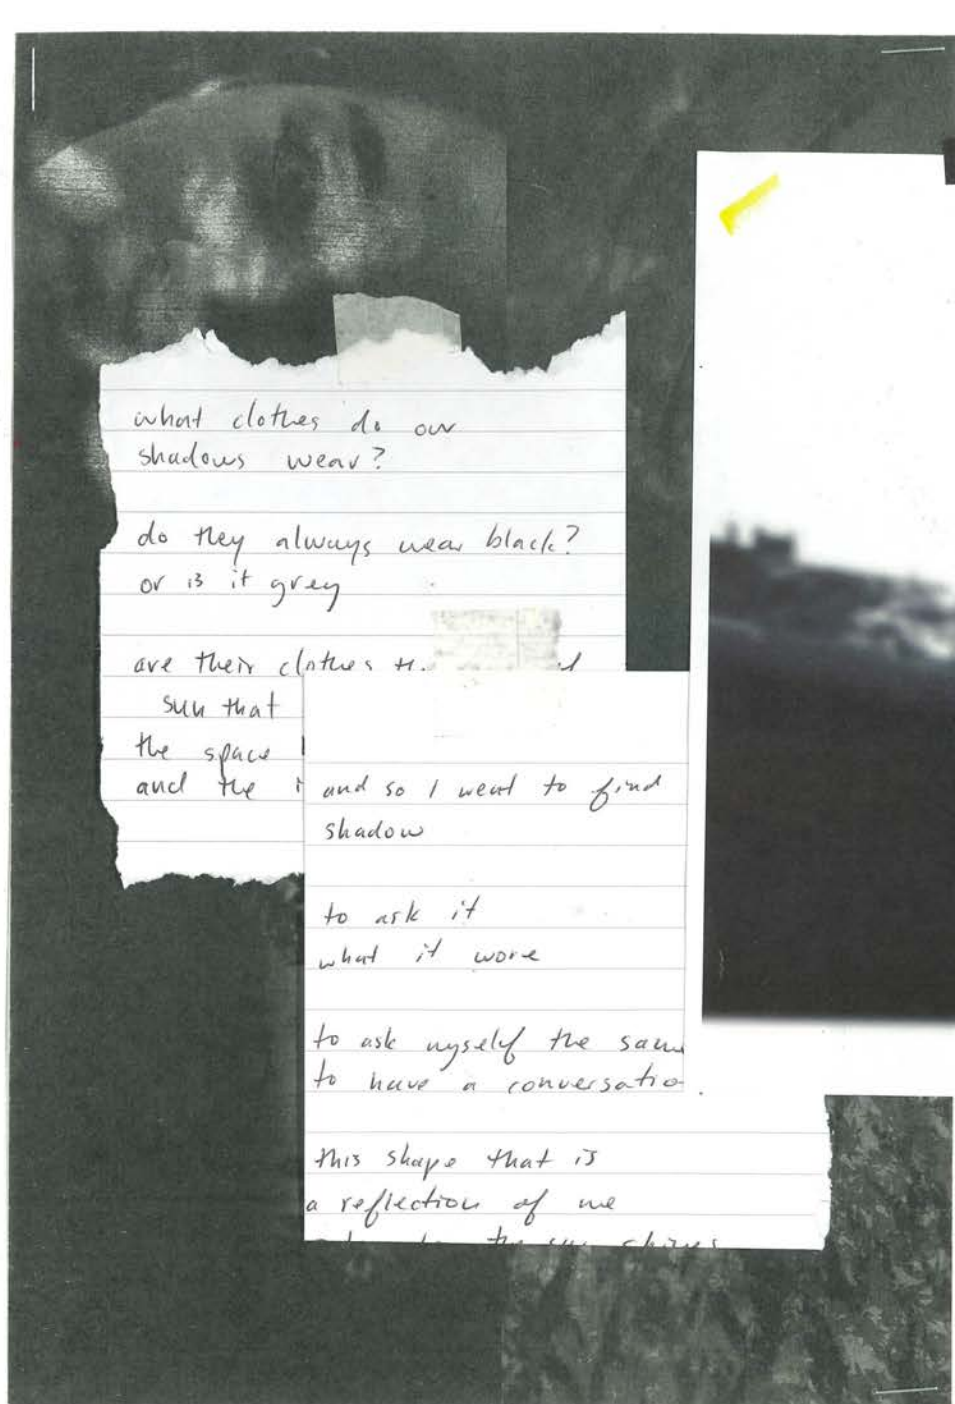 what clothes do our
shadows wear?
do they always wear black?
or is it grey
are their clothes
sun that
the space
and the
and so I went to find
shadow
to ask it
what it wore
to ask myself the sam
to have a conversatio
this shape that is
a reflection of me
the sun shines